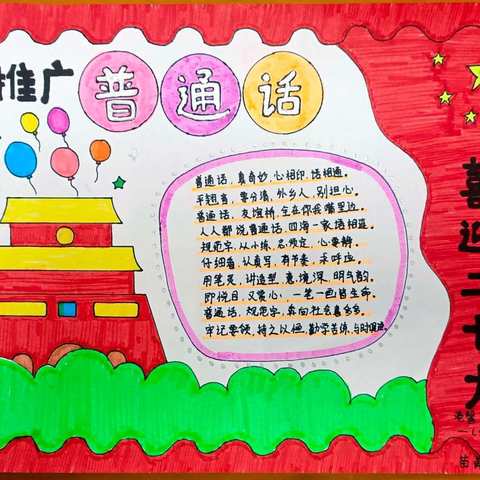 推广普通话
普通话，真奇妙，心相印，话相通。
平翘音，要分清，外乡人，别担心。
普通话，友谊桥，全在你我嘴里边。
人人都说普通话，四海一家
规范字，从小练，心要静。
仔细看，认真写，有节奏，
用笔灵，讲造型，意境深，明气韵。
即悦目，又赏心，一笔一画皆生命。
普通话，规范字，
牢记要领，持之以恒，勤学苦练，与时俱进。
喜迎二十大